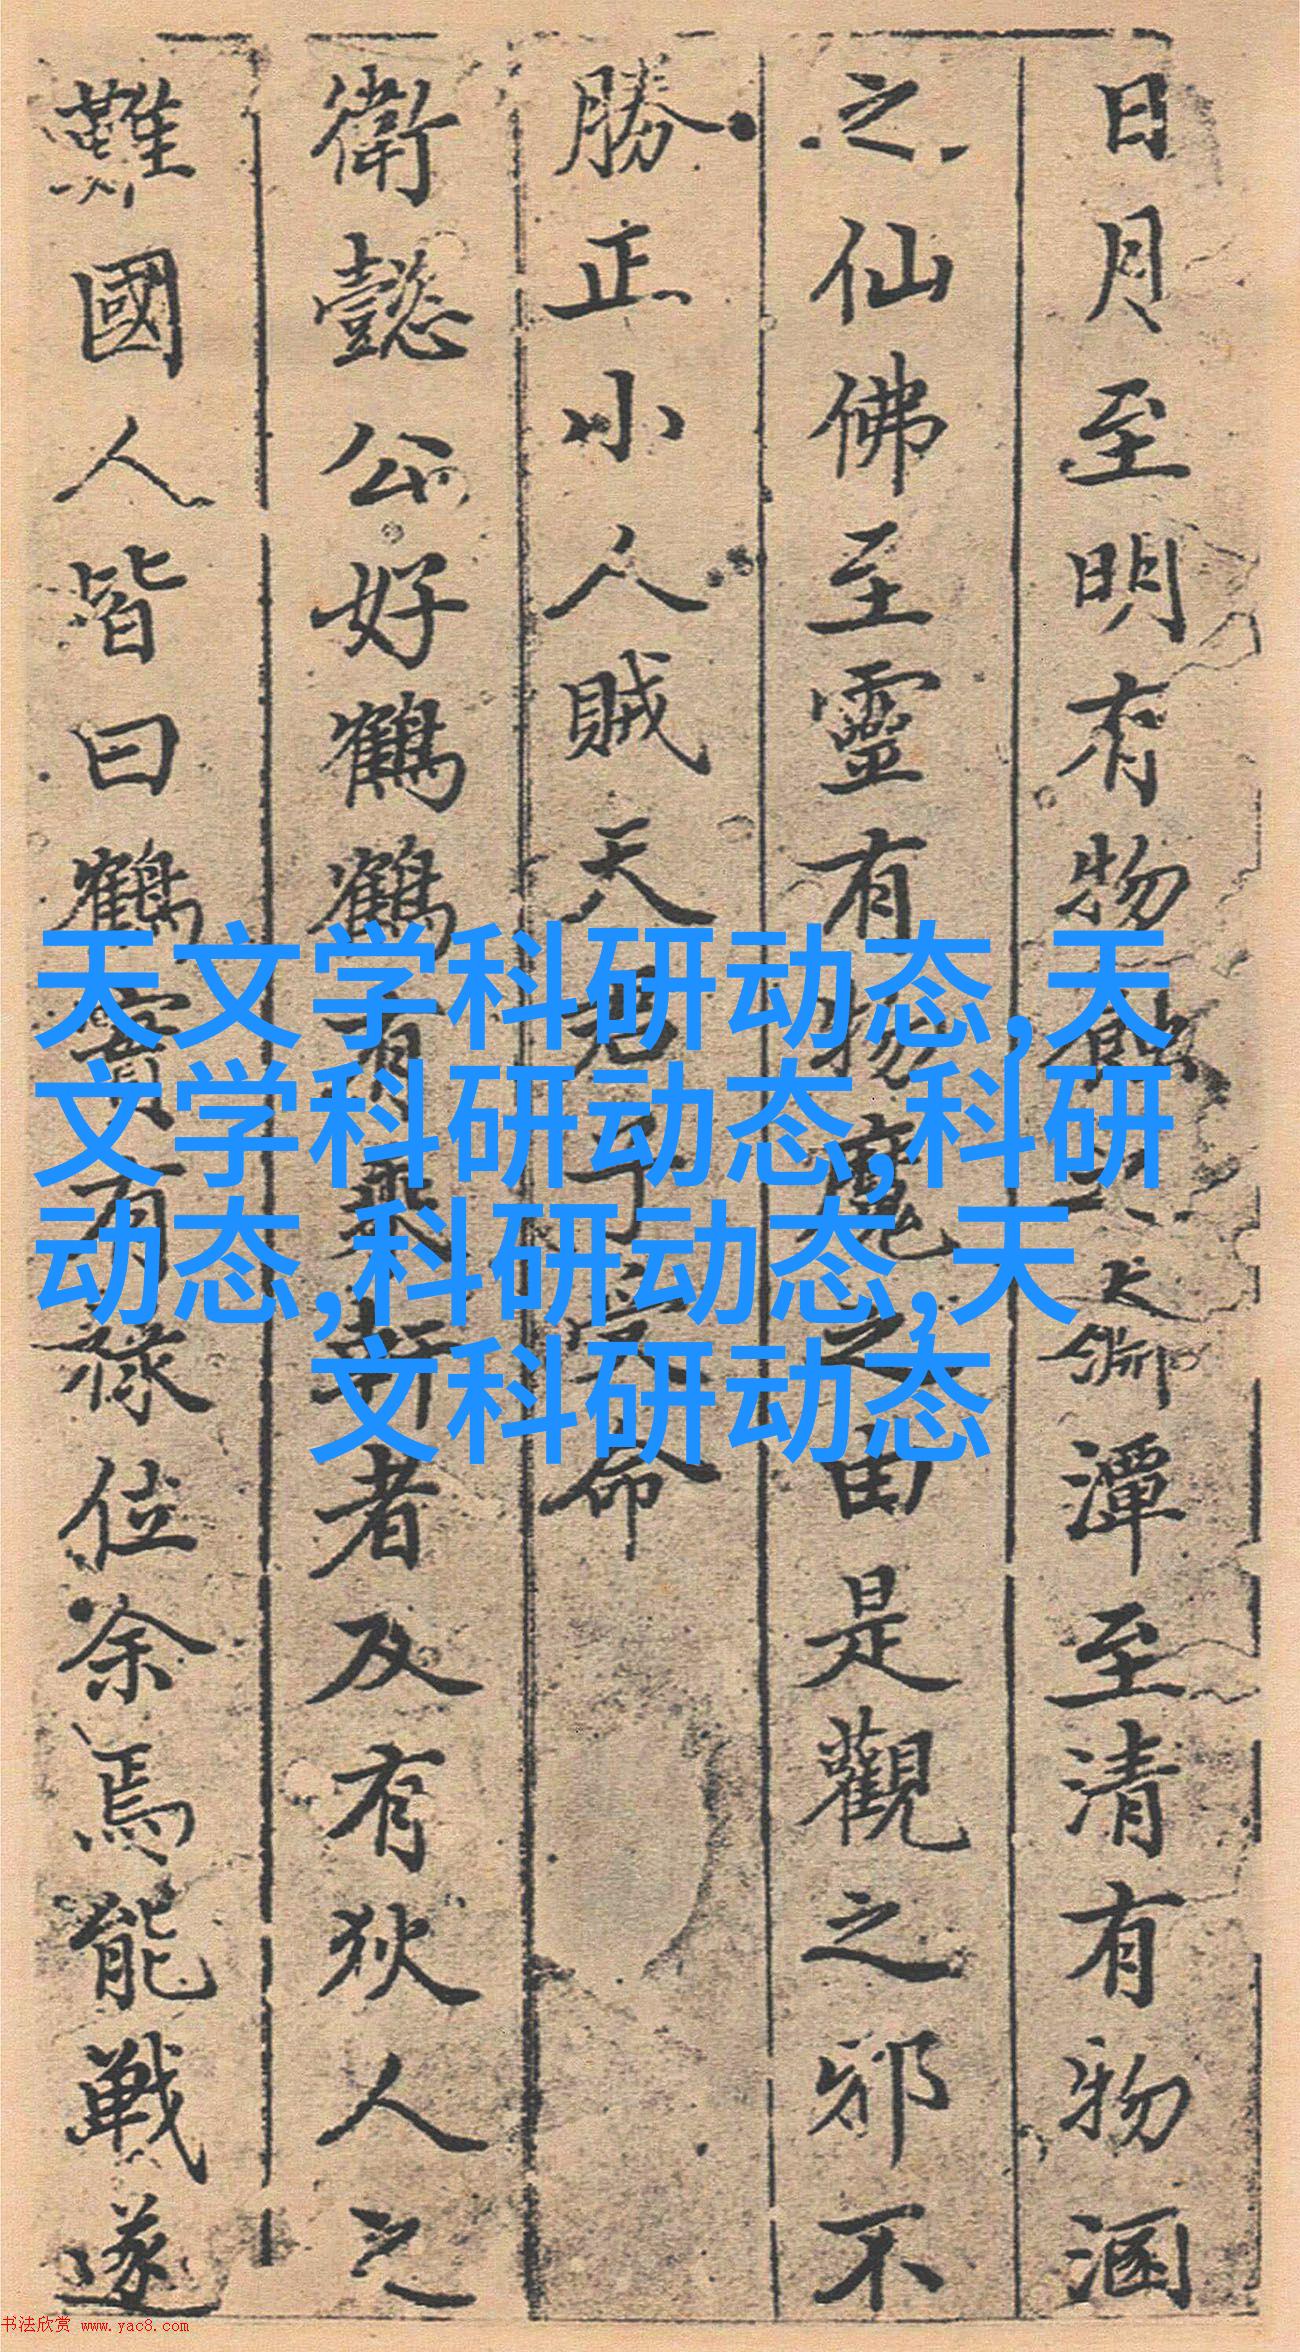 日月至明有物蝕之大淵潭至清有物溷
之仙佛至靈有物魔之由是觀之邪不
勝正小人賊天君子受命
衛懿公好鶴鶴有乘軒者及有狄人之
難國人皆曰鶴實有祿位余焉能戰遂
天文学科研动态,天
文学科研动态,科研
动态,科研动态,天
文科研动态
书法欣赏 www.yac8.com